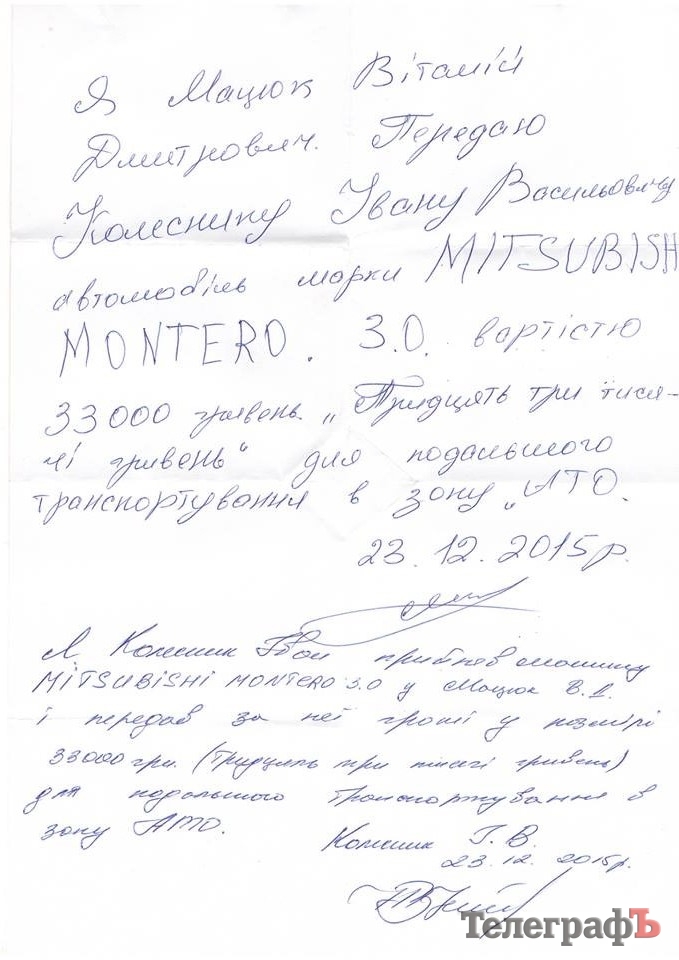 Я Мацюк Віталій
Дмитрович. Передаю
Колеснику Івану Васильовичу
автомобіль марки MITSUBISH
MONTERO. 3.0. вартістю
33000 гривень. „Тридцять три тися-
чі гривень“ для подальшого
транспортування в зону „АТО.
23.12.2015р.
Я Колесник Іван прийняв машину
MITSUBISHI MONTERO 3.0 у Мацюк В.Д.
і передав за неї гроші у розмірі
33000 грн. (тридцять три тисячі гривень)
для подальшого транспортжування в
зону АТО.
Колесник І. В.
23.12. 2015р.
ТелеграфЪ